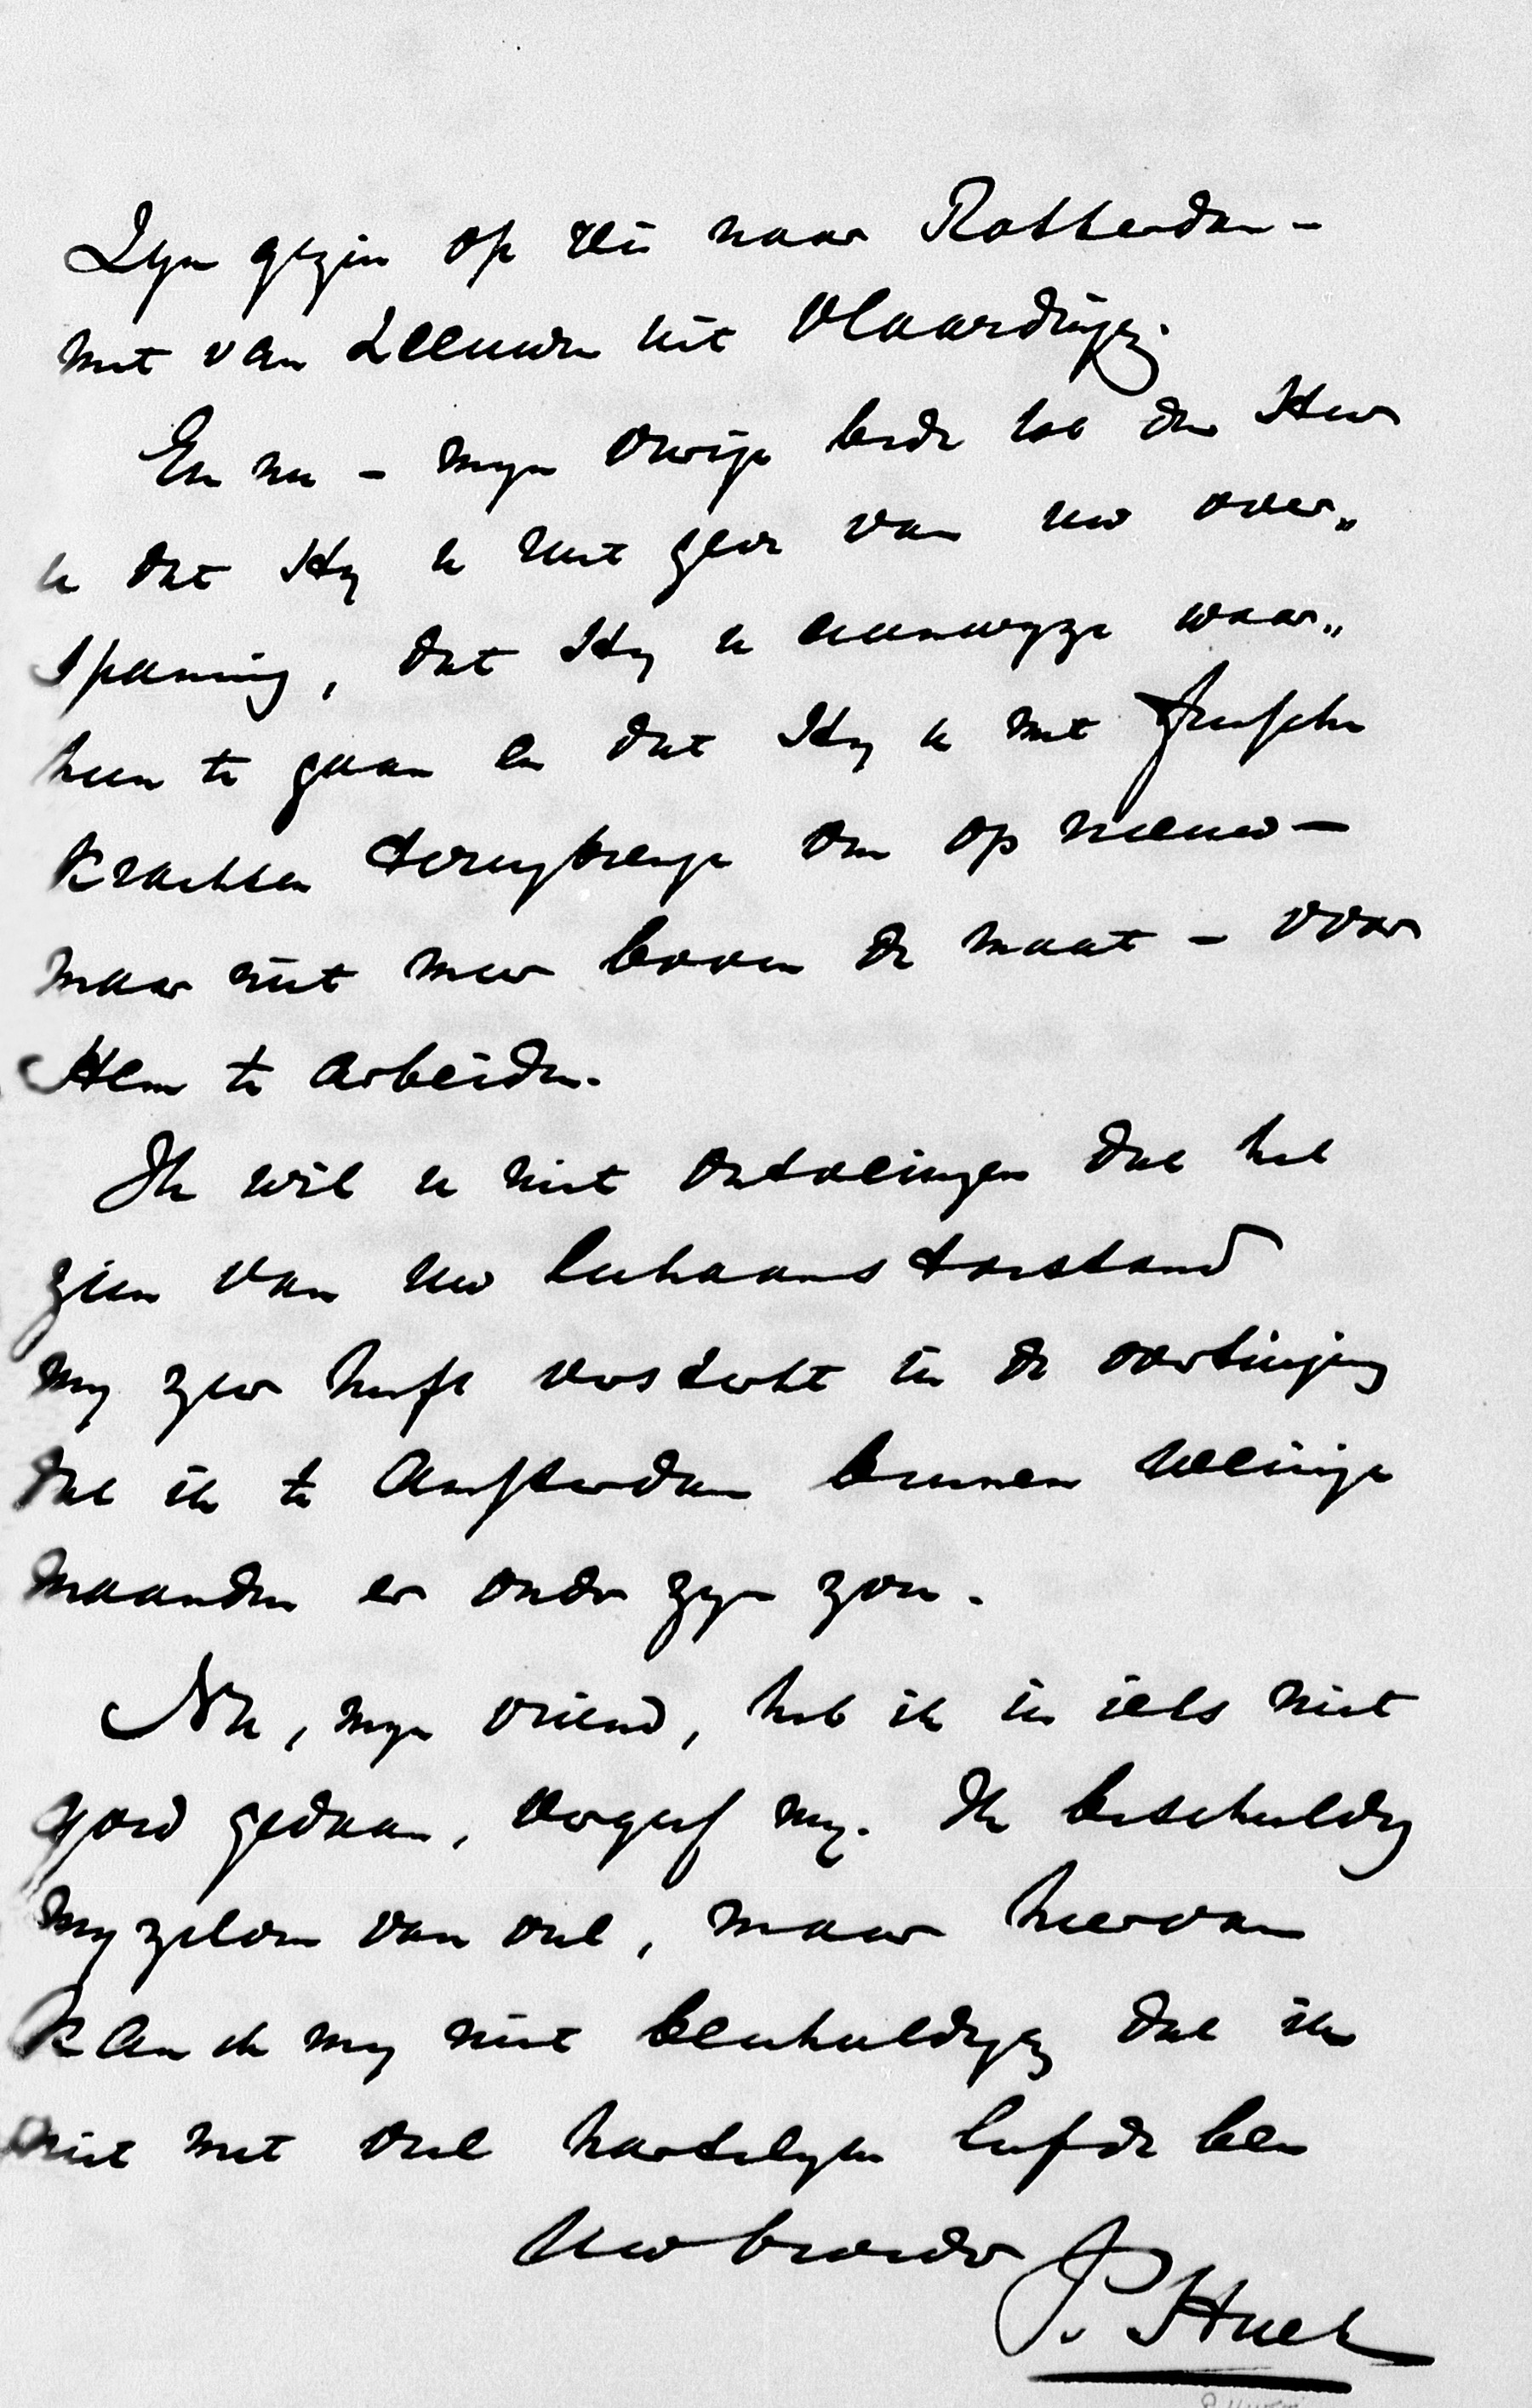 Zyn gezin op reis naar Rotterdam –
met van Leeuwen uit Vlaardingen.
En nu – myn bede tot den Heer
u dat Hy u rust geve van uw over„
spanning, dat Hy u aanwyze waar„
heen te gaan en dat Hy u met frissche
krachten terugbrenge om op nieuw –
maar niet meer boven de maat – voor
Hem te arbeiden.
Ik wil u niet ontveinzen dat het
zien van uw lichaamstoestand
my zeer heeft versterkt in de overtuiging
dat ik te Amsterdam binnen weinige
maanden er onder zyn zou.
Nu, myn vriend, heb ik in iets niet
goed gedaan, vergeef my. Ik beschuldig
myzelven van veel, maar hiervan
kan ik my niet beschuldigen dat ik
niet met veel hartelyke liefde ben
Uw broeder
P. Huet